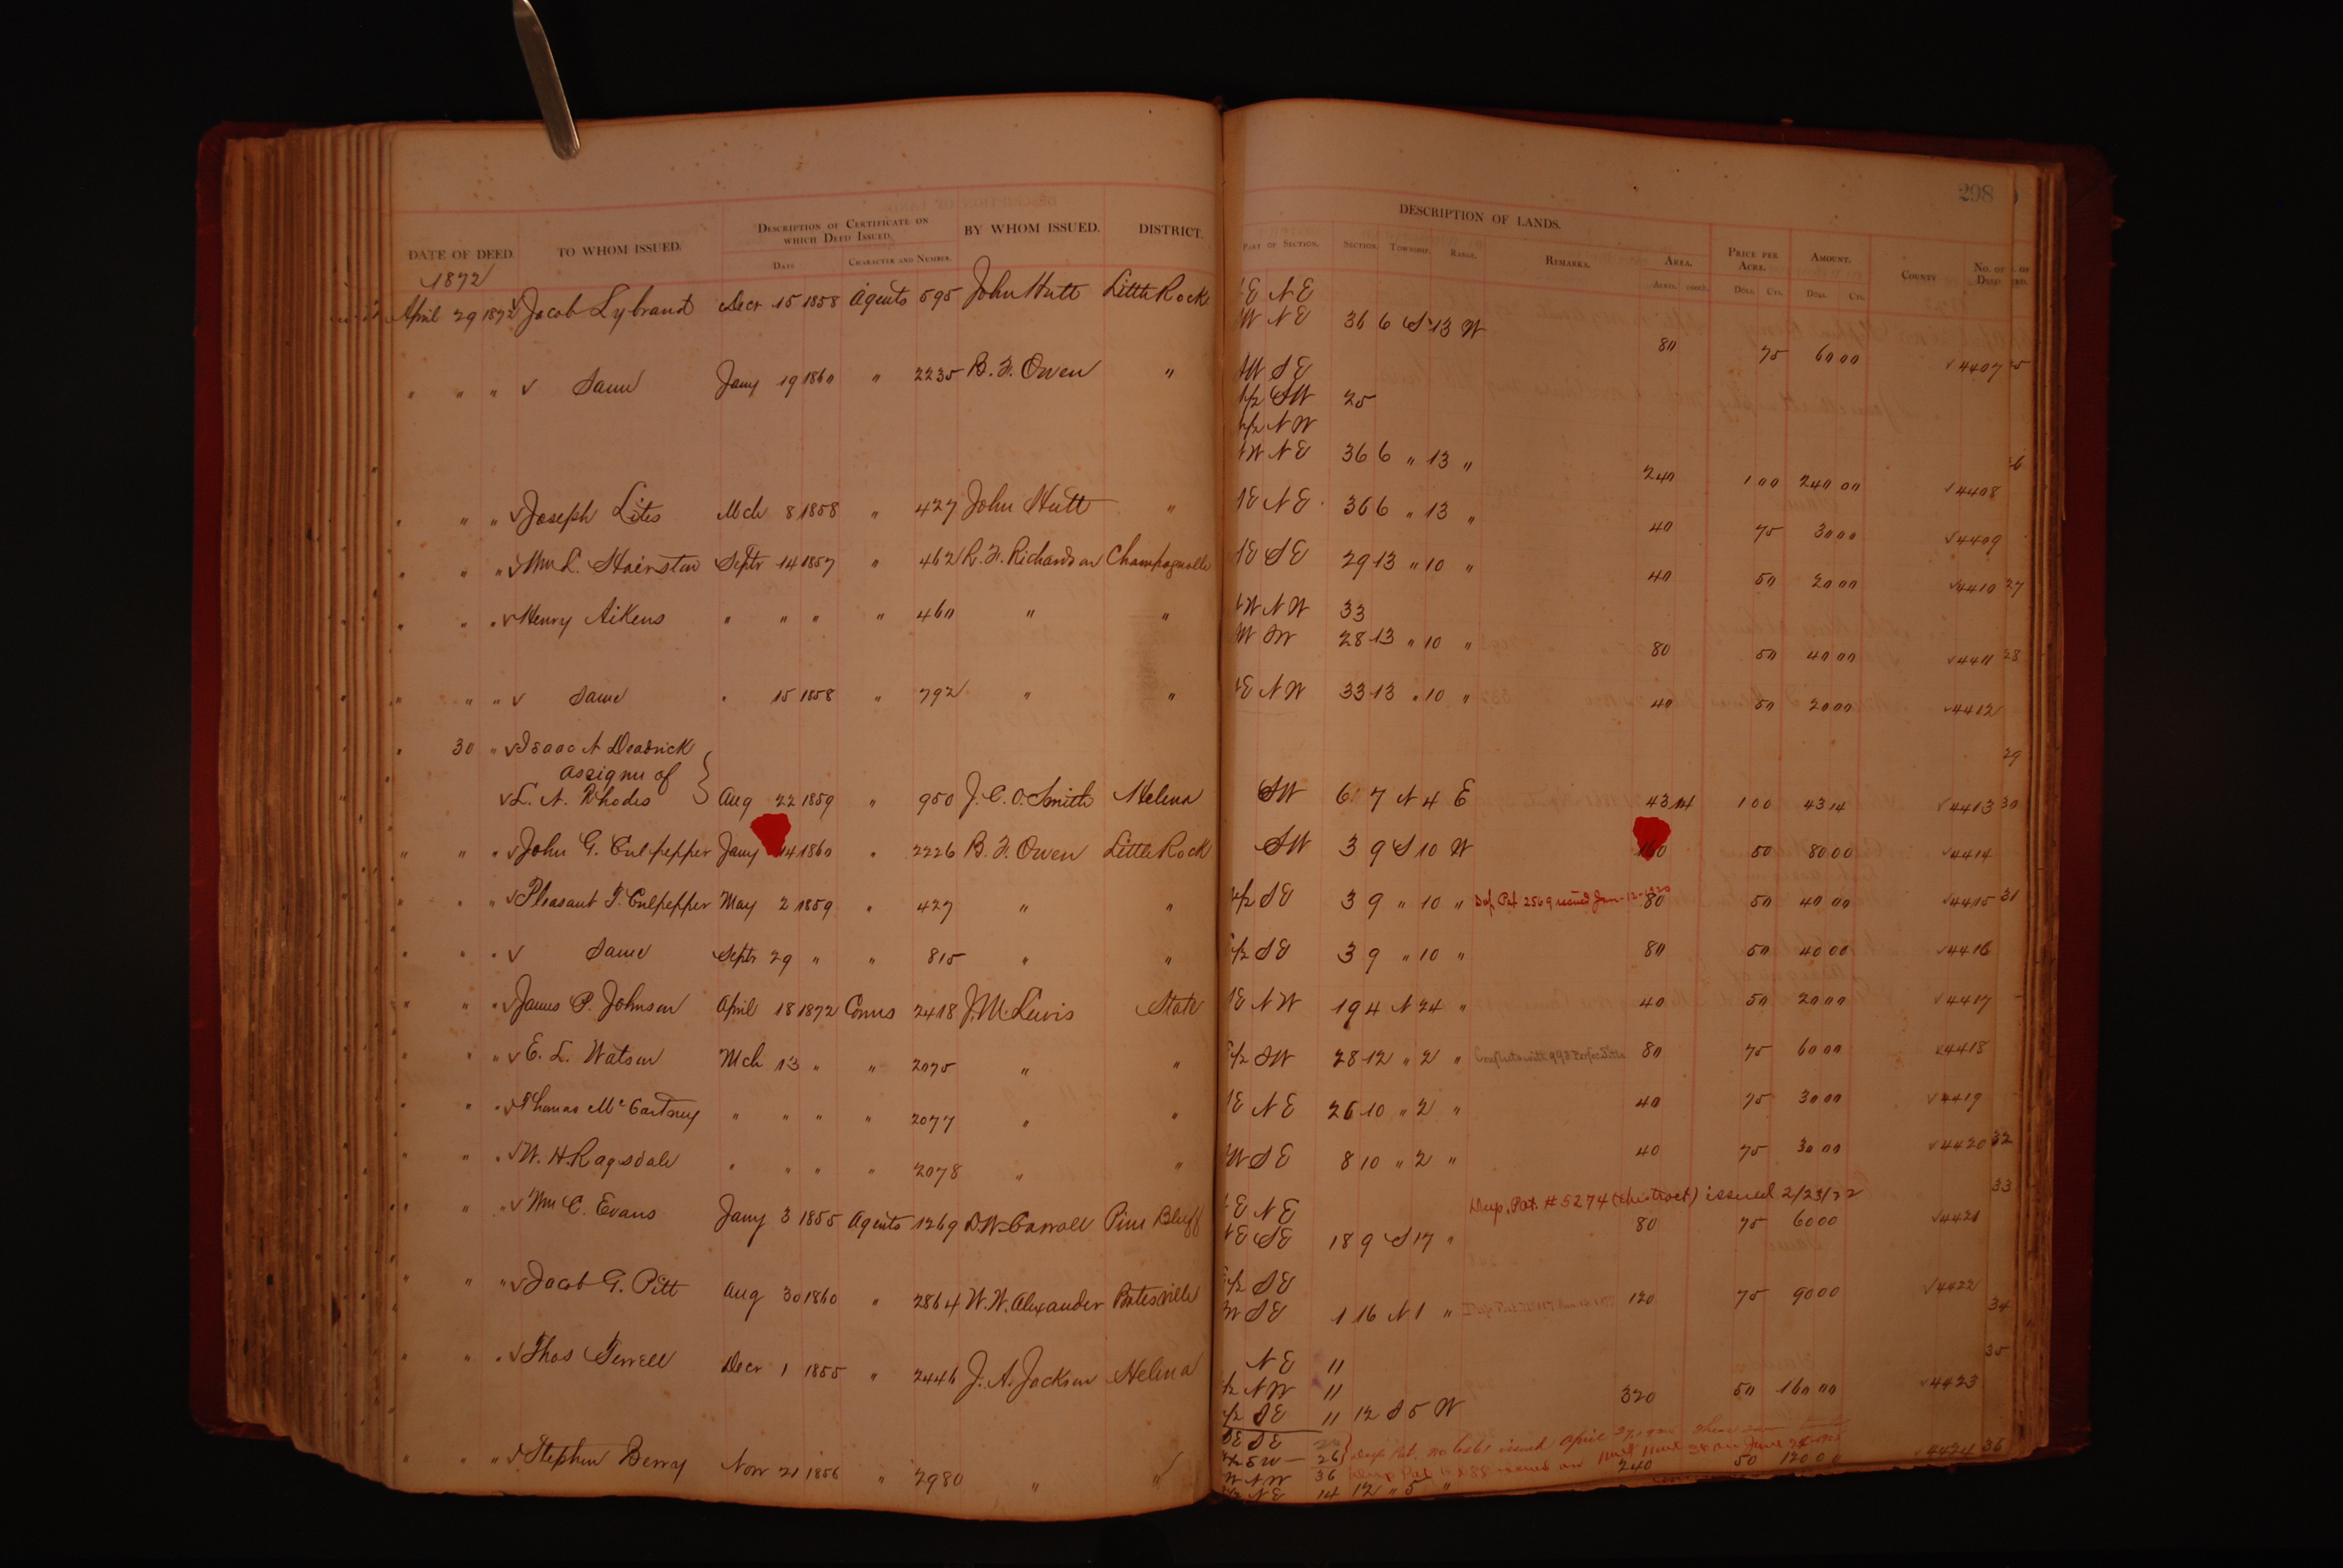 298
DESCRIPTION OF LANDS.
DATE OF DEED. TO WHOM ISSUED. DESCRIPTION OF CERTIFICATE ON WHICH DEED ISSUED. BY WHOM ISSUED. DISTRICT. PART OF SECTION. SECTION. TOWNSHIP. RANGE. REMARKS. AREA. PRICE PER ACRE. AMOUNT. COUNTY No. OF DEED
DATE CHARACTER AND NUMBER. ACRES. DOLL. CTS. DOLL. CTS.
1872
April 29 1872 Jacob Lybrand Decr 15 1858 Agents 595 John Hutt Little Rock E NE
W NE 36 6 S 13 W 80 75 60 00 4407
" " " Same Jany 19 1860 " 2235 B. F. Owen " SW SE
1/2 SW 25
1/2 NW
NW NE 36 6 " 13 " 240 1 00 240 00 4408
" " " Joseph Lites Mch 8 1858 " 427 John Hutt " E NE 36 6 " 13 " 40 75 30 00 4409
" " " Wm L. Hairston Septr 14 1857 " 462 R. F. Richardson Champagnolle E SE 29 13 " 10 " 40 50 20 00 4410 27
" " " Henry Aikens " " " " 460 " " NW NW 33
W SW 28 13 " 10 " 80 50 40 00 4411 28
" " " Same " 15 1858 " 792 " " E NW 33 13 " 10 " 40 50 20 00 4412
" 30 " Isaac N Deadrick 29
assignee of
L. N. Rhodes Aug 22 1859 " 950 J. C. O. Smith Helena SW 6 7 N 4 E 43 14 1 00 43 14 4413 30
" " " John G. Culpepper Jany 14 1860 " 2226 B. F. Owen Little Rock SW 3 9 S 10 W 160 50 80 00 4414
" " " Pleasant T. Culpepper May 2 1859 " 427 " " 1/2 SE 3 9 " 10 " Dup Pat 2569 issued Jan-12- 80 50 40 00 4415 31
" " " Same Septr 29 " " 815 " " 1/2 SE 3 9 " 10 " 80 50 40 00 4416
" " " James P. Johnson April 18 1872 Coms 2418 J. M. Lewis State E NW 19 4 N 24 " 40 50 20 00 4417
" " " E. L. Watson Mch 13 " " 2075 " " 1/2 SW 28 12 " 2 " Conflicts with 80 75 60 00 4418
" " " Thomas McCartney " " " " 2077 " " E NE 26 10 " 2 " 40 75 30 00 4419
" " " W. H. Ragsdale " " " " 2078 " " W SE 8 10 " 2 " 40 75 30 00 4420 32
33
" " " Wm C. Evans Jany 3 1855 Agents 1269 D. W. Carroll Pine Bluff E NE Dup. Pat. #5274 issued 2/23/22
E SE 18 9 S 17 " 80 75 60 00 4421
" " " Jacob G. Pitt Aug 30 1860 " 2864 W. W. Alexander Batesville 1/2 SE
W SE 1 16 N 1 " 120 75 90 00 4422
34
" " " Thos Terrell Decr 1 1855 " 2446 J. A. Jackson Helena NE 11 35
1/2 NW 11
1/2 SE 11 12 S 5 W 320 50 160 00 4423
SE SE Dup. Pat. No issued April
SW 26
" " " Stephen Berry Novr 21 1856 " 2980 " " NW 36 Dup Pat issued on June 240 50 120 00 4424 36
NE 14 12 " 5 "